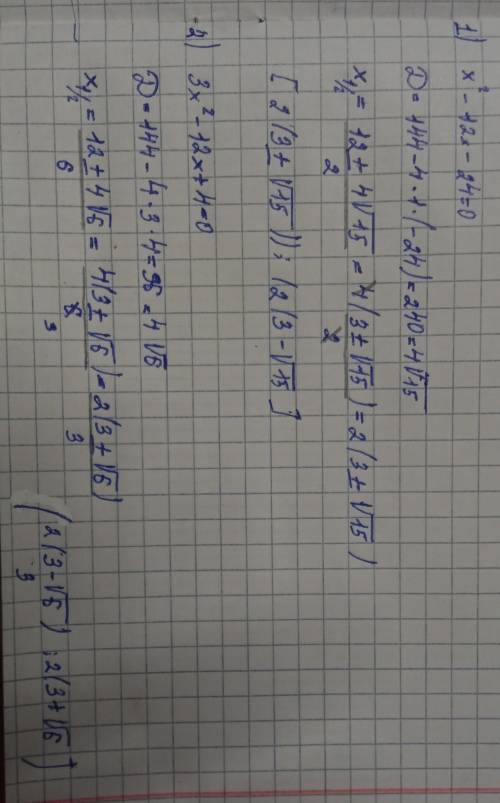 1) x² - 12x - 24 = 0
D = 144 - 4 · 1 · (-24) = 240 = 4√15
x1/2 = 12 ± 4√15 / 2 = 4(3 ± √15) / 2 = 2(3 ± √15)
[2(3 ± √15)); (2(3 - √15]
2) 3x² - 12x + 4 = 0
D = 144 - 4 · 3 · 4 = 96 = 4√6
x1/2 = 12 ± 4√6 / 6 = 4(3 ± √6) / 6 3 = 2(3 ± √6) / 3
(2(3 - √6) / 3 ; 2(3 + √6)